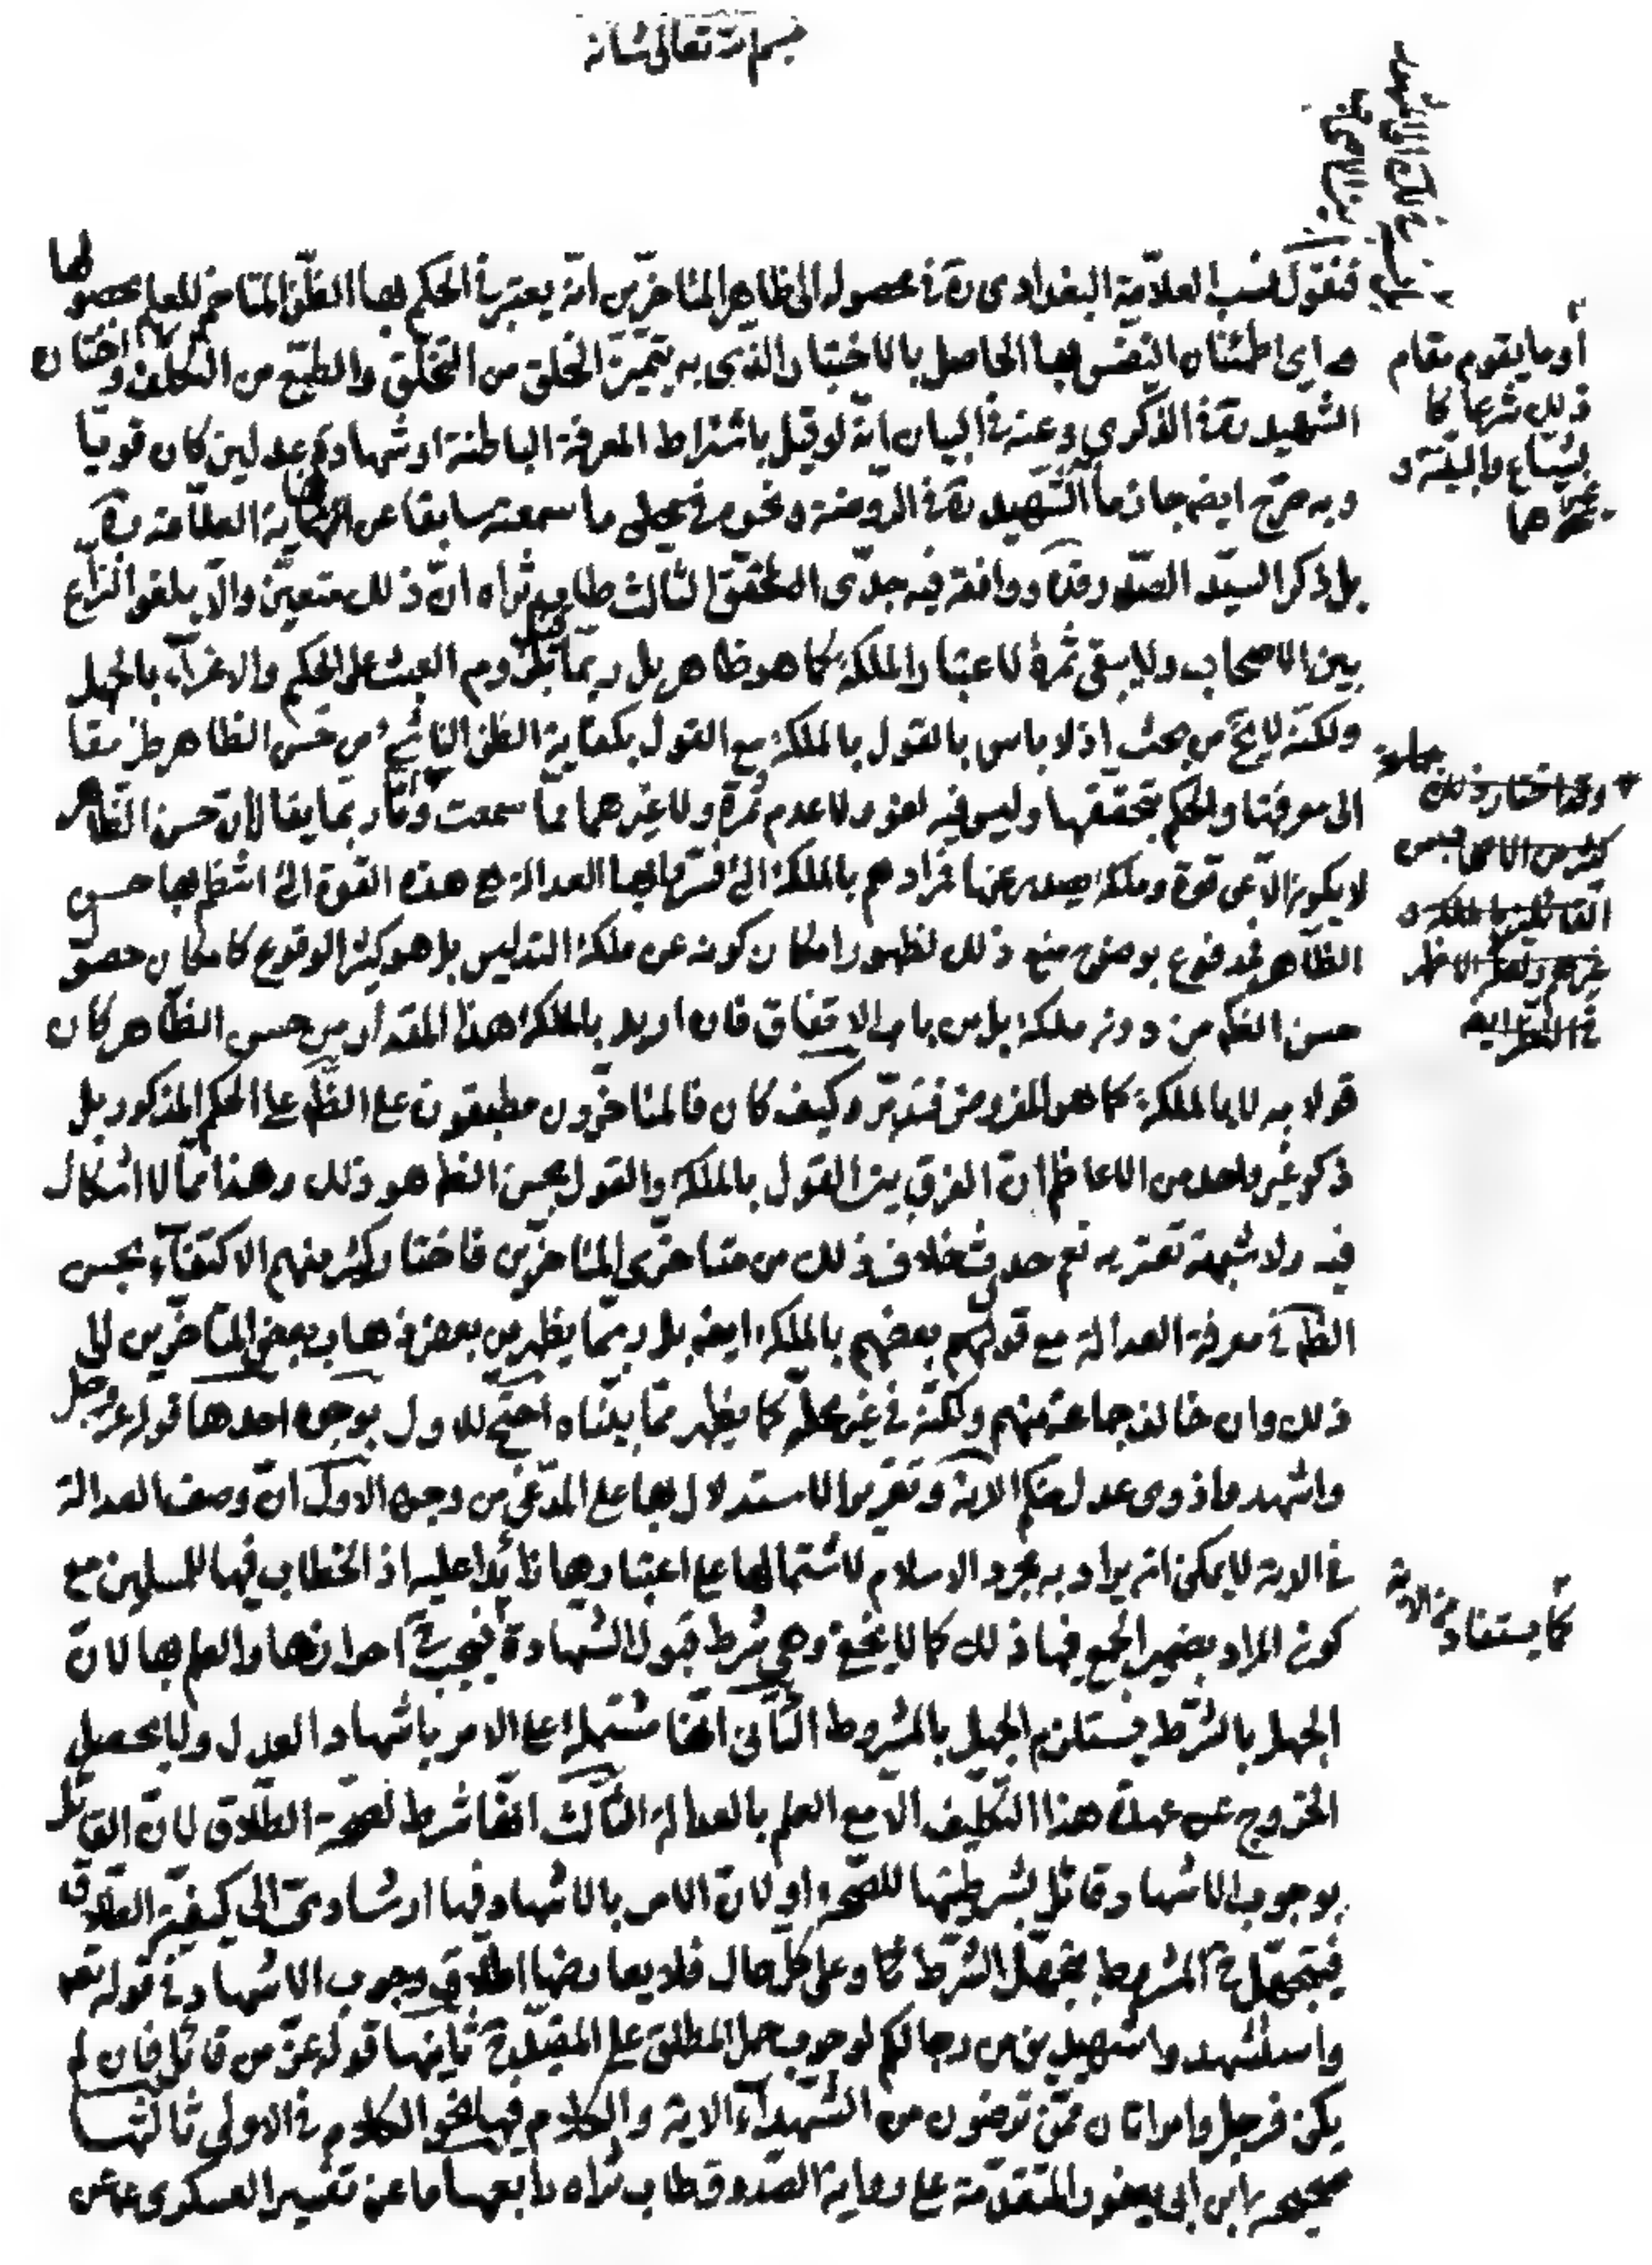 بسم الله تعالى شأنه
فنقول نسب العلامة البغدادي ره في محصوله الى ظاهر المتأخرين انه يعتبر في الحكم بها الظن المتاخم للعلم بحصولها
اي اطمئنان النفس بها الحاصل بالاختبار الذي به يتميز الخلق من التخلق والطبع من التكلف واختاره
الشهيد ره في الذكرى وعنه في البيان انه لو قيل باشتراط المعرفة الباطنة او شهادة عدلين كان قويا
وبه صرح ايضا جازما الشهيد ره في الروضة ونحوه في محكي ما سمعته سابقا عن نهاية العلامة ره
بل ذكر السيد الصدر وقد وافقه فيه جدي المحقق الثالث طاب ثراه ان ذلك متعين والا يلغو النزاع
بين الاصحاب ولا يبقى ثمرة لاعتبار الملكة كما هو ظاهر بل ربما يلزم العبث على الحكم والاغراء بالجهل
ولكنه لا يخ من بحث اذ لا باس بالقول بالملكة مع القول بكفاية الظن الناشئ من حسن الظاهر طريقا
الى معرفتها والحكم بتحققها وليس فيه لغو ولا عدم ثمرة ولا غيرهما مما سمعت واما ربما يقال ان حسن الظاهر
لا يكون الا عن قوة وملكة يصدر عنها فمرادهم بالملكة التي فسروا بها العدالة هي هذه القوة التي اشظم بها حسن
الظاهر فمدفوع بوضوح منع ذلك لظهور امكان كونه عن ملكة التدليس بل هو كثير الوقوع كامكان حصول
حسن الظم من دون ملكة بل من باب الاتفاق فان اريد بالملكة هذا المقدار من حسن الظاهر كان
قولا به لا بالملكة كما هو المفروض فتدبر وكيف كان فالمتاخرون مطبقون على الظم على الحكم المذكور بل
ذكر غير واحد من الاعاظم ان الفرق بين القول بالملكة والقول بحسن الظم هو ذلك وهذا مما لا اشكال
فيه ولا شبهة تعتريه نعم حدث خلاف ذلك من متاخري المتاخرين فاختار كثير منهم الاكتفاء بحسن
الظم في معرفة العدالة مع قول بعضهم بالملكة ايضا بل ربما يظهر من بعض ذهاب بعض المتاخرين الى
ذلك وان خالف جماعة منهم ولكنه في غير محله كما يظهر مما بيناه احتج للاول بوجوه احدها قوله عز وجل
واشهدوا ذوى عدل منكم الاية وتقرير الاستدلال بها على المدعى من وجوه الاول ان وصف العدالة
في الاية لا يمكن ان يراد به مجرد الاسلام لاشتمالها على اعتبارها زائدا عليه اذ الخطاب فيها للمسلمين مع
كون المراد بضمير الجمع فيها ذلك كما لا يخفى وهي شرط قبول الشهادة فيجب احرازها والعلم بها لان
الجهل بالشرط يستلزم الجهل بالمشروط الثاني انها مشتملة على الامر باشهاد العدل ولا يحصل
الخروج عن عهدة هذا التكليف الا مع العلم بالعدالة الثالث انها شرط لصحة الطلاق لان القائل
بوجوب الاشهاد قائل بشرطيتها للصحة او لان الامر بالاشهاد فيها ارشادي الى كيفية الطلاق
فيتجهل المشروط بتجهل الشرط وعلى كل حال فلا يعارضها اطلاق وجوب الاشهاد في قوله تعه
واستشهدوا شهيدين من رجالكم لوجوب حمل المطلق على المقيد ثانيها قوله عز من قائل فان لم
يكن فرجل وامراتان ممن ترضون من الشهداء الاية والكلام فيها نحو الكلام في الاولى ثالثها
صحيحة ابن ابي يعفور المتقدمة على رواية الصدوق طاب ثراه رابعها ما عن تفسير العسكري عن
أو ما يقوم مقام
ذلك شرعا كا
لشياع والبينة و
غيرهما
وقد اختار ذلك جملة
كثير من الاصحاب من
القائلين بالملكة و
غيرهم ولعله الاظهر
في النظر ايه
كما يستفاد من الاية